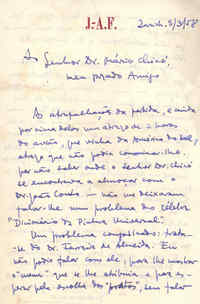 J.-A.F.
Zurich, 5/3/58
Ao Senhor Dr. Mário Chicó,
meu prezado Amigo
As atrapalhações da partida, e ainda
por cima delas um atrazo de 2 horas
do avião, que vinha da América do Sul,
atrazo que não podia comunicar-lhe
por não saber onde o Senhor Dr. Chicó
se encontrava a almoçar com o
Dr. João Couto — não me deixaram
falar-lhe num problema do célebre
"Dicionário da Pintura Universal".
Um problema complicado: trata-
-se do Dr. Tavares de Almeida. Eu
não podia falar com ele, para lhe mostrar
o "menu" que se lhe atribuía e para es-
perar pela escolha dos "pratos", sem falar